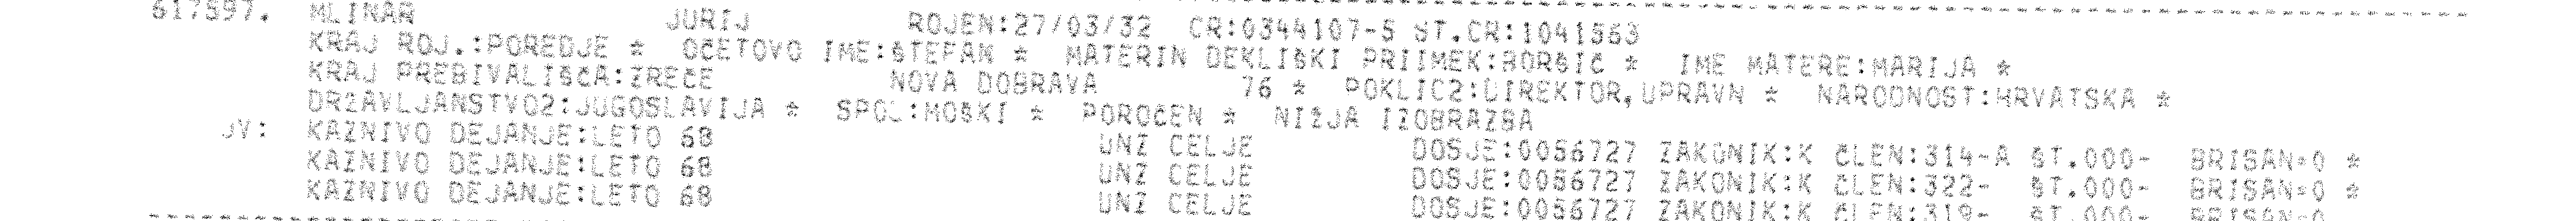 617597. MLINAR JURIJ ROJEN:27/03/32 CR:0344107-5 ŠT.CR:1041563
KRAJ ROJ.:POREDJE * OČETOVO IME:ŠTEFAN * MATERIN DEKLIŠKI PRIIMEK:BORŠIČ * IME MATERE:MARIJA *
KRAJ PREBIVALIŠČA:ZREČE NOVA DOBRAVA 76 * POKLIC2:DIREKTOR,UPRAVN * NARODNOST:HRVATSKA *
DRŽAVLJANSTVO2:JUGOSLAVIJA * SPOL:MOŠKI * POROČEN * NIŽJA IZOBRAZBA
JV: KAZNIVO DEJANJE:LETO 68 UNZ CELJE DOSJE:0056727 ZAKONIK:K ČLEN:314-A ŠT.000- BRISAN=0 *
KAZNIVO DEJANJE:LETO 68 UNZ CELJE DOSJE:0056727 ZAKONIK:K ČLEN:322- ŠT.000- BRISAN=0 *
KAZNIVO DEJANJE:LETO 68 UNZ CELJE DOSJE:0056727 ZAKONIK:K ČLEN:319- ŠT.000- BRISAN=0